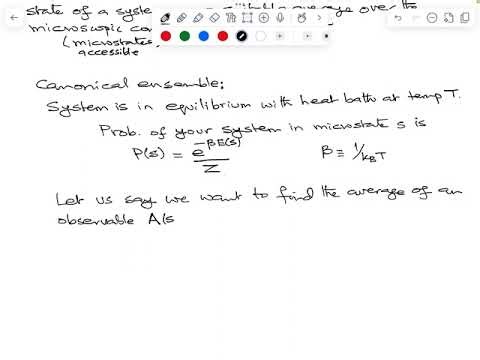 state of a system
average over the
microscopic co
(microstates,
accessible
Canonical ensemble:
System is in equilibrium with heat bath at temp T.
Prob. of your system in microstate s is
P(s) = e^{-βE(s)}/Z    β ≡ 1/k_BT
Let us say we want to find the average of an
observable A(s